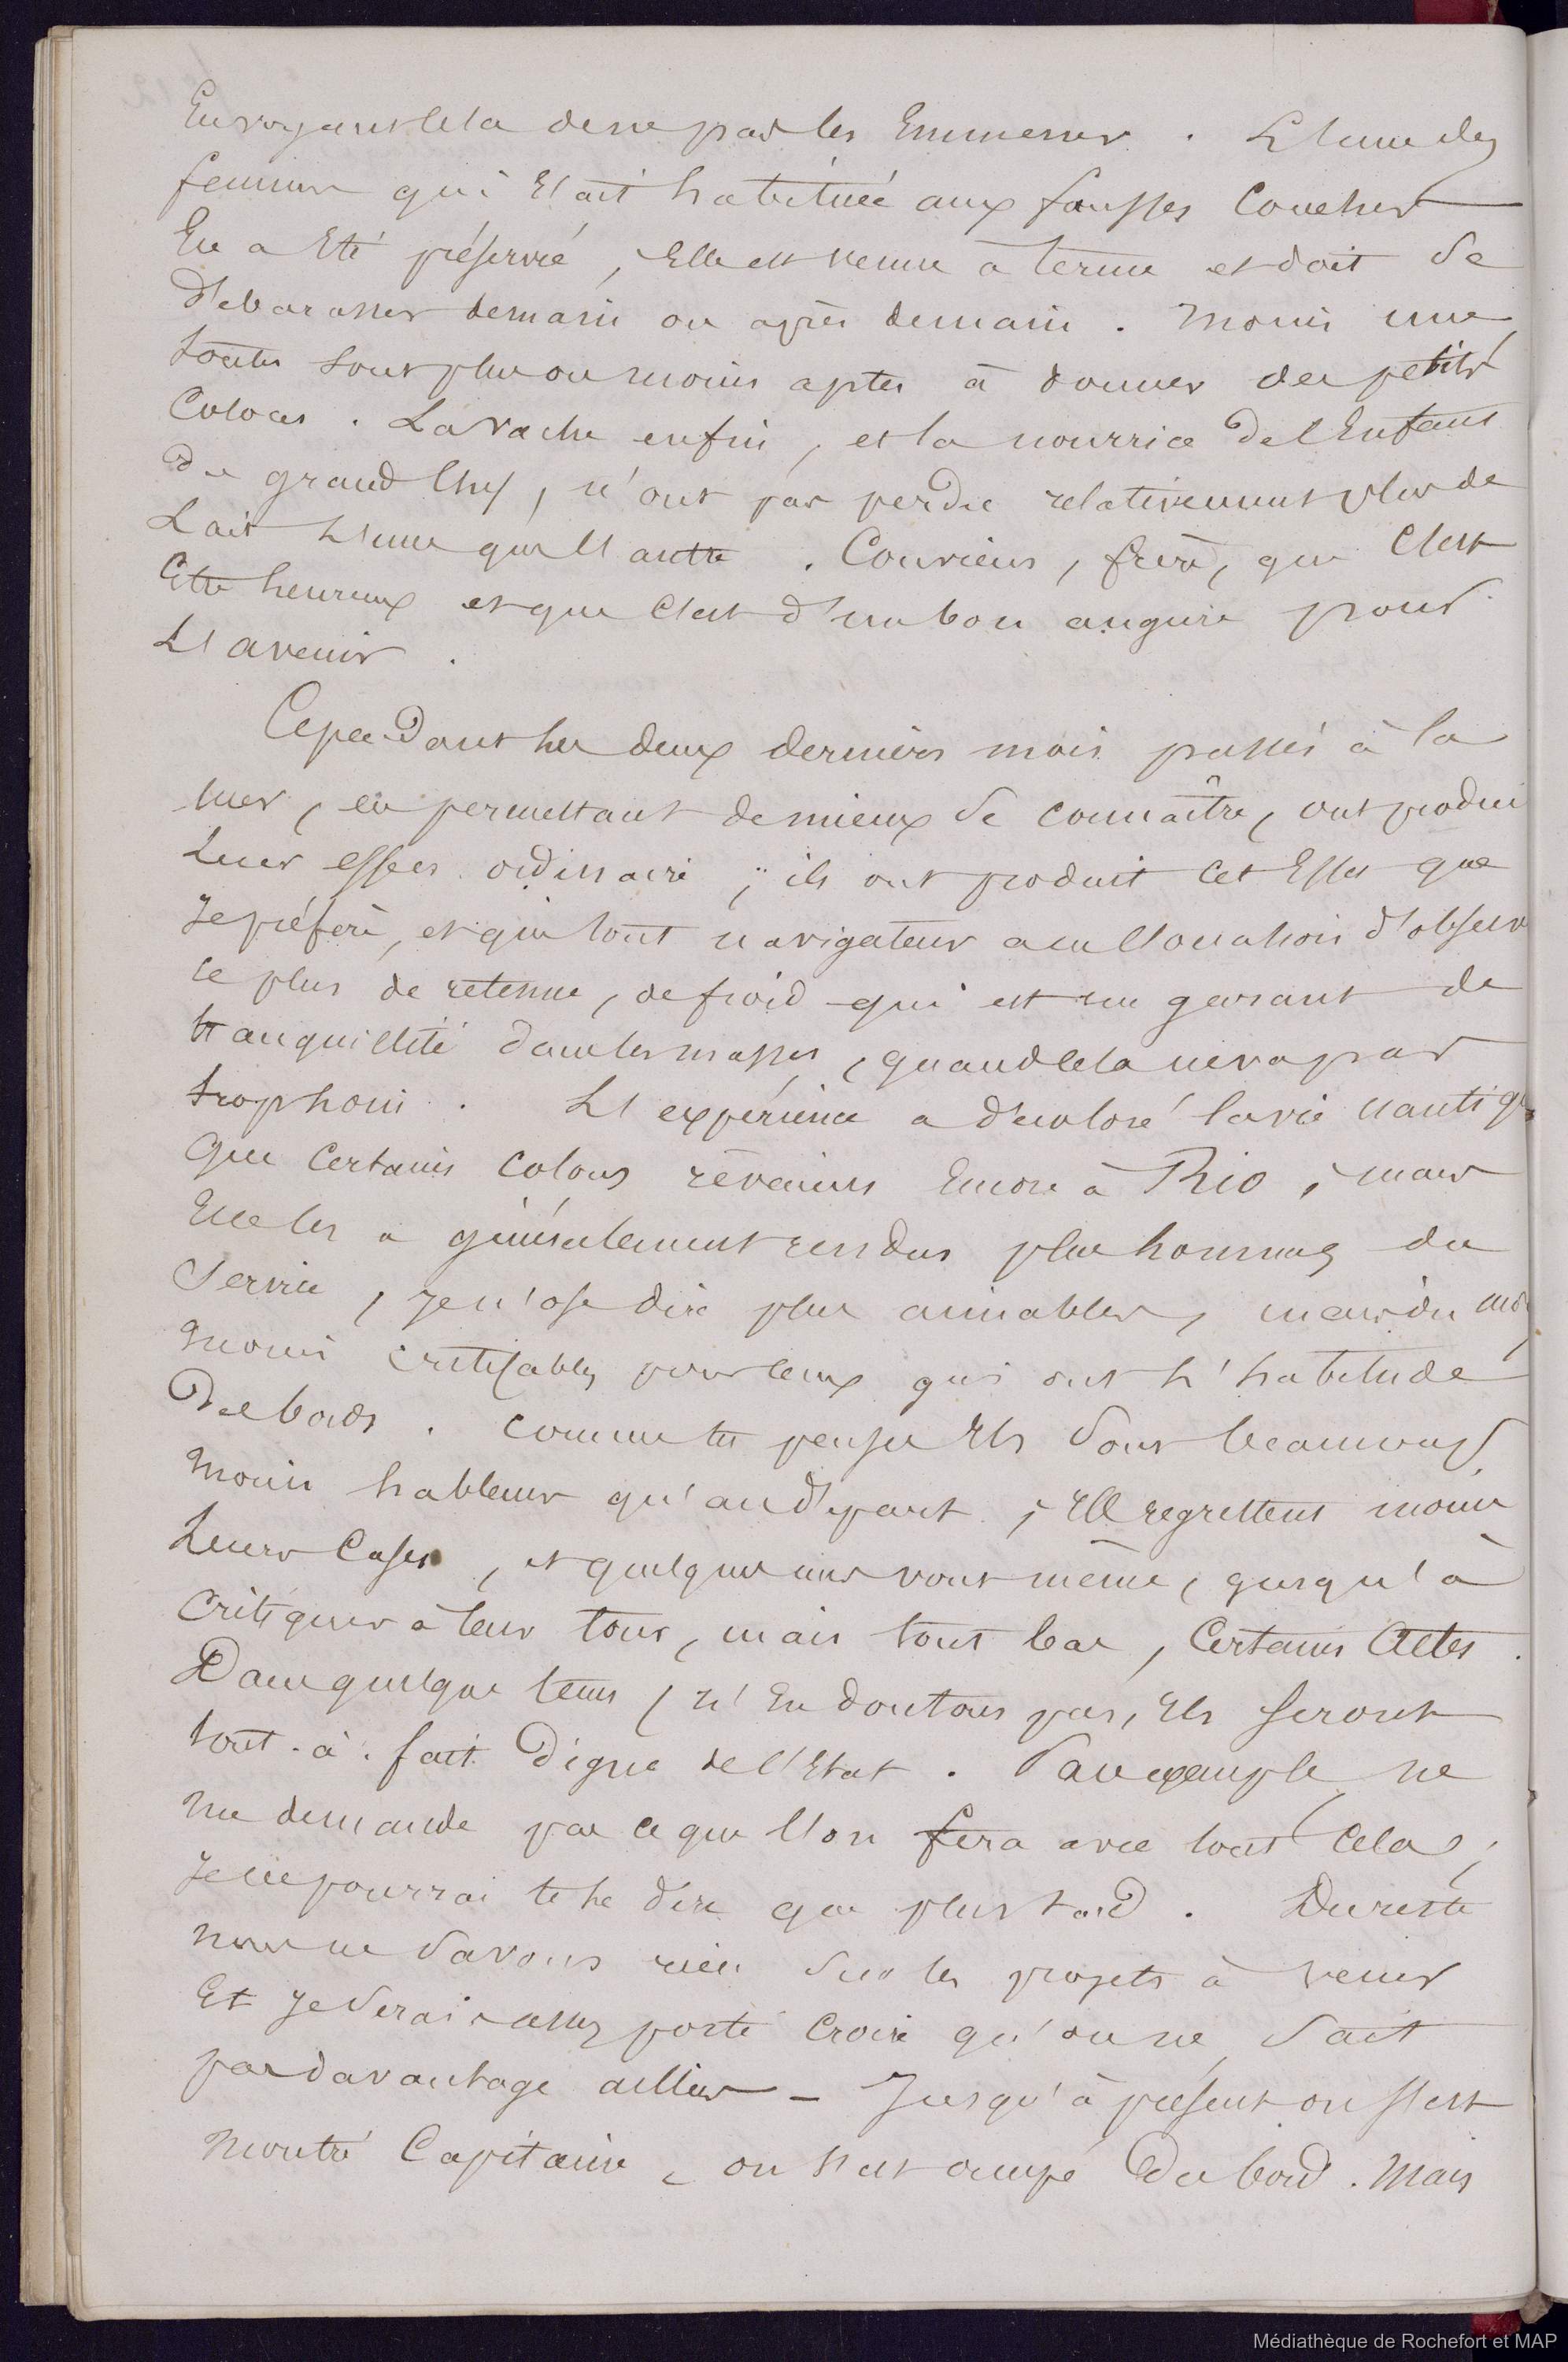 En voyant cela de ne pas les Emmener. L'une des
femmes qui Etait habituée aux fausses Couches
En a Eté préservée, Elle est venue à terme et doit se
d'ebarasser demain ou après demain. Moins une
toutes sont plus ou moins aptes à donner des petits
Colons. La vache enfin, et la nourrice de l'Enfant
du grand Chef, n'ont pas perdu relativement plus de
Lait L'une que l'autre. Conviens, frère, que C'est
Etre heureux et que C'est d'un bon augure pour
L'avenir.
Cependant les deux derniers mois passés à la
mer, en permettant de mieux se connaître, ont produi
Leur effet ordinaire; ils ont produit cet Effet que
Je préfère, et que tout navigateur a eu l'occasion d'observ
ce plus de retenue, de froid qui est un garant de
tranquillité dans les masses, quand cela ne va pas
trop loin. L'expérience a décoloré la vie nautiq
que Certains colons rêvaient Encore à Rio, mais
Elle les a généralement rendus plus hommes du
Service, je n'ose dire plus aimables, mais du
moins critiquables pour ceux qui ont l'habitude
Des bords. Comme tu penses Ils sont beaucoup
moins hableurs qu'au départ, Ils regrettent moins
Leurs Cases, et quelques uns vont même, jusqu'à
critiquer à leur tour, mais tout bas, Certains Actes.
Dans quelque tems, n'En doutons pas, Ils seront
tout-à-fait digne de l'Etat. Par exemple ne
me demande pas ce que l'on fera avec tout Cela,
Je ne pourrai te le dire que plus tard. Du reste
nous ne Savons rien Sur les projets à venir
Et Je Serais assez porté Croire qu'on ne Sait
pas davantage ailleurs - Jusqu'à présent on s'est
montré Capitaine, on s'est occupé Du bord. Mais
Médiathèque de Rochefort et MAP